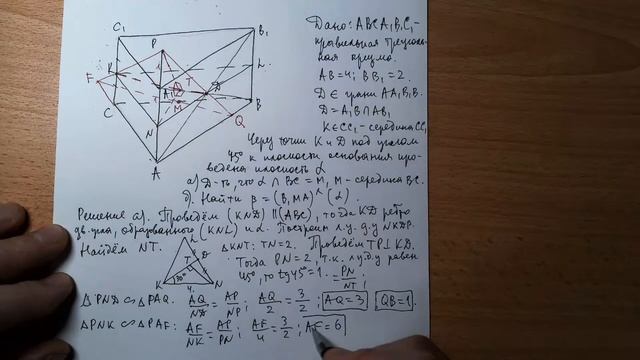 C₁
B₁
P
F
K
L
T
A₁
D
C
M
B
N
Q
A
Дано: ABCA₁B₁C₁ –
правильная треуголь-
ная призма.
AB = 4; BB₁ = 2.
D ∈ грани AA₁B₁B.
D = A₁B ∩ AB₁
K ∈ CC₁ - середина CC₁
Через точки K и D под углом
45° к плоскости основания про-
ведена плоскость α
а) Д-ть, что α ∩ BC = M, M - середина BC.
б). Найти β = (B₁MA)^(α).
Решение а). Проведём (KND) || (ABC), то гда KD ребро
дв. угла, образованного (KNL) и α. Построим л.у. д.у NKDP.
Найдём NT.
L
D
T
K
30°
4
N
ΔKNT: TN = 2. Проведём TP ⊥ KD.
Тогда PN = 2, т.к. лу ду равен
45°, то tg 45° = 1 = PN/NT;
ΔPND ∽ ΔPAQ. AQ/ND = AP/NP; AQ/2 = 3/2; AQ = 3 QB = 1
ΔPNK ∽ ΔPAF: AF/NK = AP/PN; AF/4 = 3/2; AF = 6